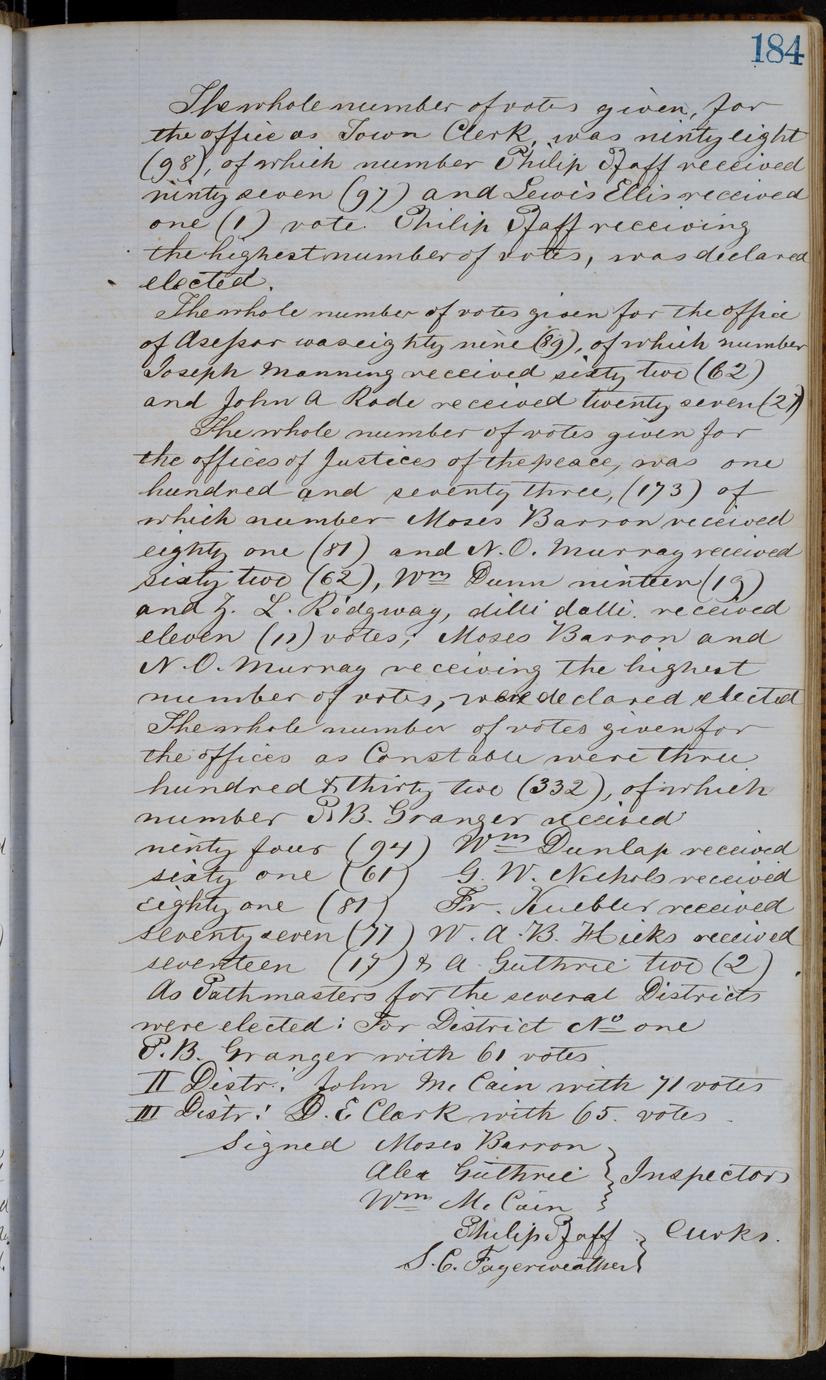 184
The whole number of votes given, for
the office as Town Clerk, was ninty eight
(98), of which number Philip Pfaff received
ninty seven (97) and Lewis Ellis received
one (1) vote. Philip Pfaff receiving
the highest number of votes, was declared
elected.
The whole number of votes given for the office
of Asessor was eighty nine (89), of which number
Joseph Manning received sixty two (62)
and John A Rode received twenty seven (27)
The whole number of votes given for
the offices of Justices of the peace, was one
hundred and seventy three, (173) of
which number Moses Barron received
eighty one (81) and N. O. Murray received
sixty two (62), Wm Dunn ninteen (19)
and Z. L. Ridgway, ditti datti. received
eleven (11) votes; Moses Barron and
N. O. Murray receiving the highest
number of votes, were declared elected
The whole number of votes given for
the offices as Constable were three
hundred & thirty two (332), of which
number P. B. Granger received
ninty four (94) Wm Dunlap received
sixty one (61) G. W. Nichols received
eighty one (81) Fr. Kuebler received
seventy seven (77) W. A. B. Hicks received
seventeen (17) & A. Guthrie two (2)
As Pathmasters for the several Districts
were elected: For District No one
P. B. Granger with 61 votes
II Distr: John Mc Cain with 71 votes
III Distr: D. E Clark with 65. votes.
Signed Moses Barron
Alex Guthrie } Inspectors
Wm Mc Cain
Philip Pfaff } Clerks.
S. C. Fayerweather